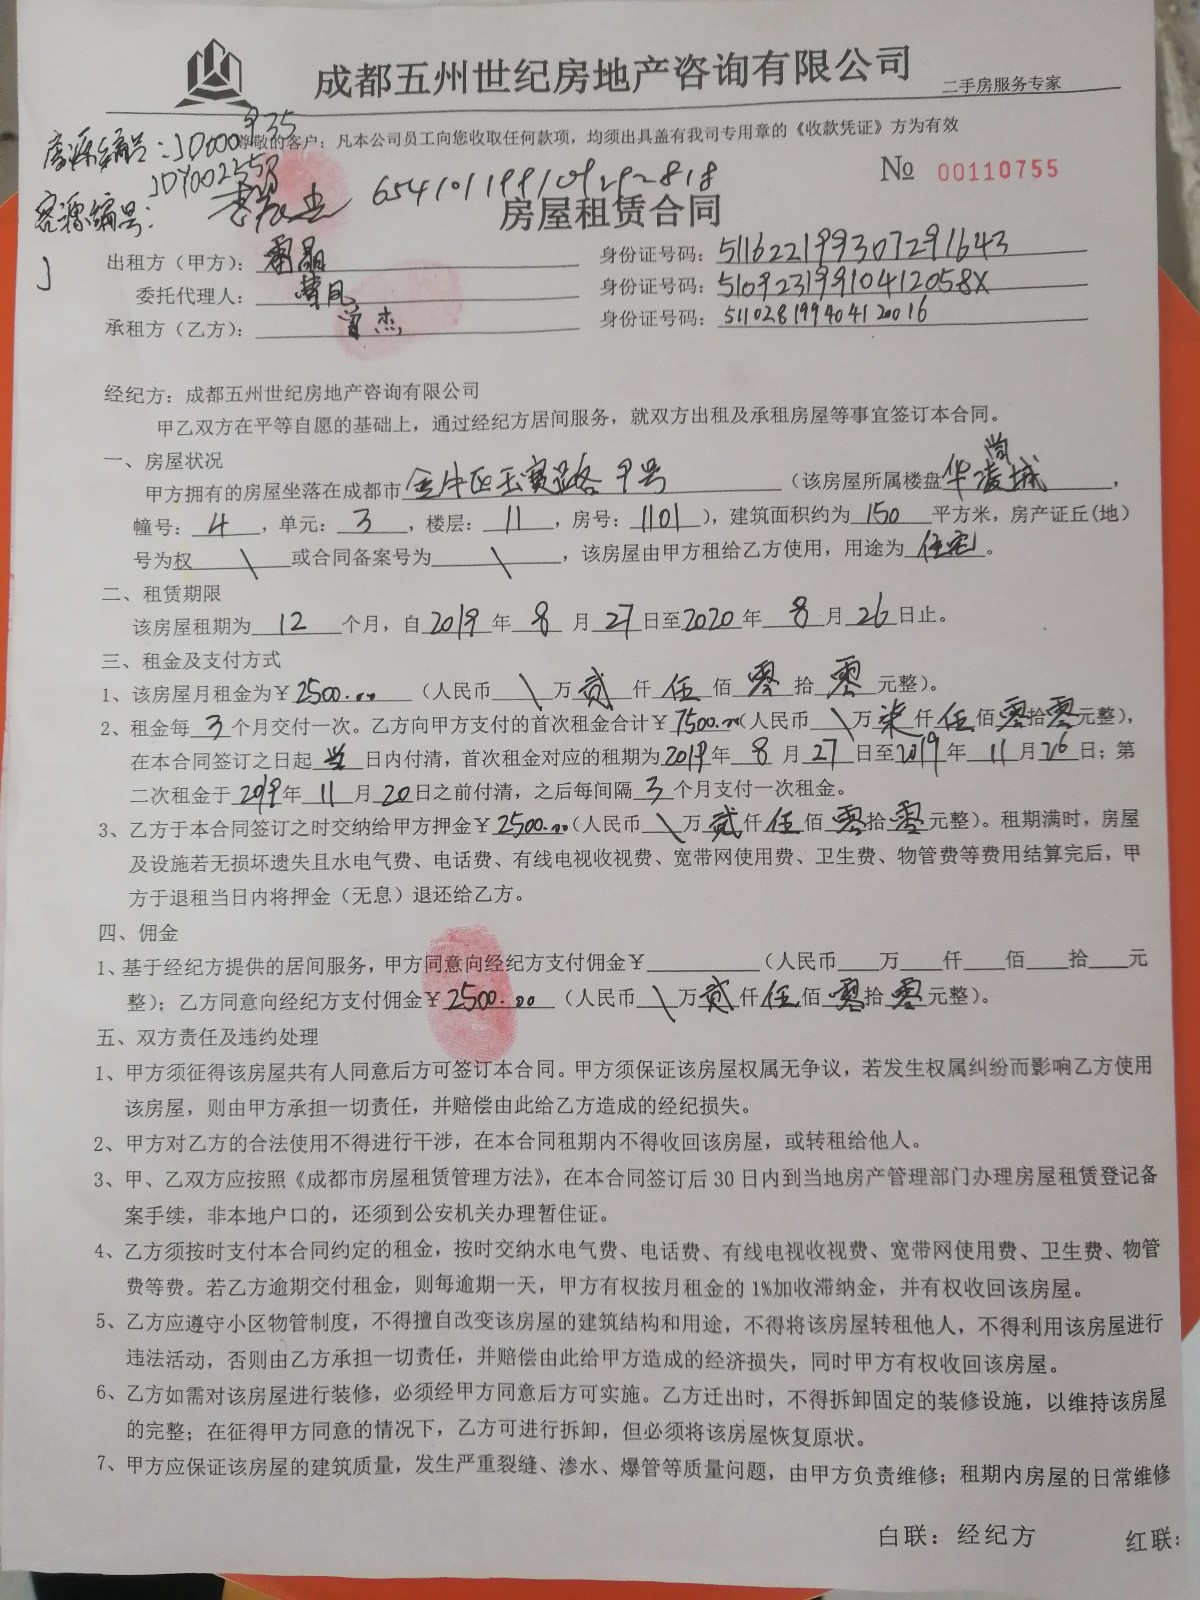 成都五州世纪房地产咨询有限公司
二手房服务专家
尊敬的客户：凡本公司员工向您收取任何款项，均须出具盖有我司专用章的《收款凭证》方为有效
房源编号：JD000935
JDY002553
客源编号：
654101199109292818
№ 00110755
房屋租赁合同
出租方（甲方）： 身份证号码：511622199307291643
委托代理人： 身份证号码：51092319910412058X
承租方（乙方）：曾杰 身份证号码：511028199404120016
经纪方：成都五州世纪房地产咨询有限公司
甲乙双方在平等自愿的基础上，通过经纪方居间服务，就双方出租及承租房屋等事宜签订本合同。
一、房屋状况
甲方拥有的房屋坐落在成都市金牛区玉赛路9号（该房屋所属楼盘华尚凌城，
幢号：4，单元：3，楼层：11，房号：1101），建筑面积约为150平方米，房产证丘(地)
号为权\或合同备案号为\，该房屋由甲方租给乙方使用，用途为住宅。
二、租赁期限
该房屋租期为12个月，自2019年8月27日至2020年8月26日止。
三、租金及支付方式
1、该房屋月租金为￥2500.00（人民币\万贰仟伍佰零拾零元整）。
2、租金每3个月交付一次。乙方向甲方支付的首次租金合计￥7500.00（人民币\万柒仟伍佰零拾零元整），
在本合同签订之日起当日内付清，首次租金对应的租期为2019年8月27日至2019年11月26日；第
二次租金于2019年11月20日之前付清，之后每间隔3个月支付一次租金。
3、乙方于本合同签订之时交纳给甲方押金￥2500.00（人民币\万贰仟伍佰零拾零元整）。租期满时，房屋
及设施若无损坏遗失且水电气费、电话费、有线电视收视费、宽带网使用费、卫生费、物管费等费用结算完后，甲
方于退租当日内将押金（无息）退还给乙方。
四、佣金
1、基于经纪方提供的居间服务，甲方同意向经纪方支付佣金￥____（人民币__万__仟__佰__拾__元
整）；乙方同意向经纪方支付佣金￥2500.00（人民币\万贰仟伍佰零拾零元整）。
五、双方责任及违约处理
1、甲方须征得该房屋共有人同意后方可签订本合同。甲方须保证该房屋权属无争议，若发生权属纠纷而影响乙方使用
该房屋，则由甲方承担一切责任，并赔偿由此给乙方造成的经纪损失。
2、甲方对乙方的合法使用不得进行干涉，在本合同租期内不得收回该房屋，或转租给他人。
3、甲、乙双方应按照《成都市房屋租赁管理方法》，在本合同签订后30日内到当地房产管理部门办理房屋租赁登记备
案手续，非本地户口的，还须到公安机关办理暂住证。
4、乙方须按时支付本合同约定的租金，按时交纳水电气费、电话费、有线电视收视费、宽带网使用费、卫生费、物管
费等费。若乙方逾期交付租金，则每逾期一天，甲方有权按月租金的1%加收滞纳金，并有权收回该房屋。
5、乙方应遵守小区物管制度，不得擅自改变该房屋的建筑结构和用途，不得将该房屋转租他人，不得利用该房屋进行
违法活动，否则由乙方承担一切责任，并赔偿由此给甲方造成的经济损失，同时甲方有权收回该房屋。
6、乙方如需对该房屋进行装修，必须经甲方同意后方可实施。乙方迁出时，不得拆卸固定的装修设施，以维持该房屋
的完整；在征得甲方同意的情况下，乙方可进行拆卸，但必须将该房屋恢复原状。
7、甲方应保证该房屋的建筑质量，发生严重裂缝、渗水、爆管等质量问题，由甲方负责维修；租期内房屋的日常维修
白联：经纪方 红联：